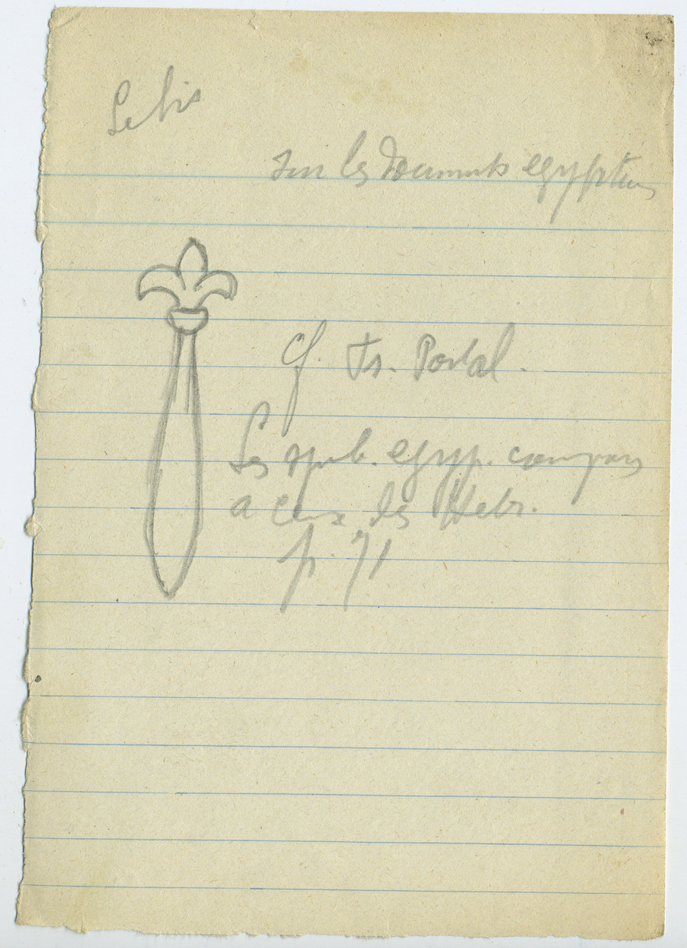 Le lis
sur les documents egyptiens
cf. Fr. Portal.
Les symb. egyp. compares
a ceux des Hebr.
p. 71